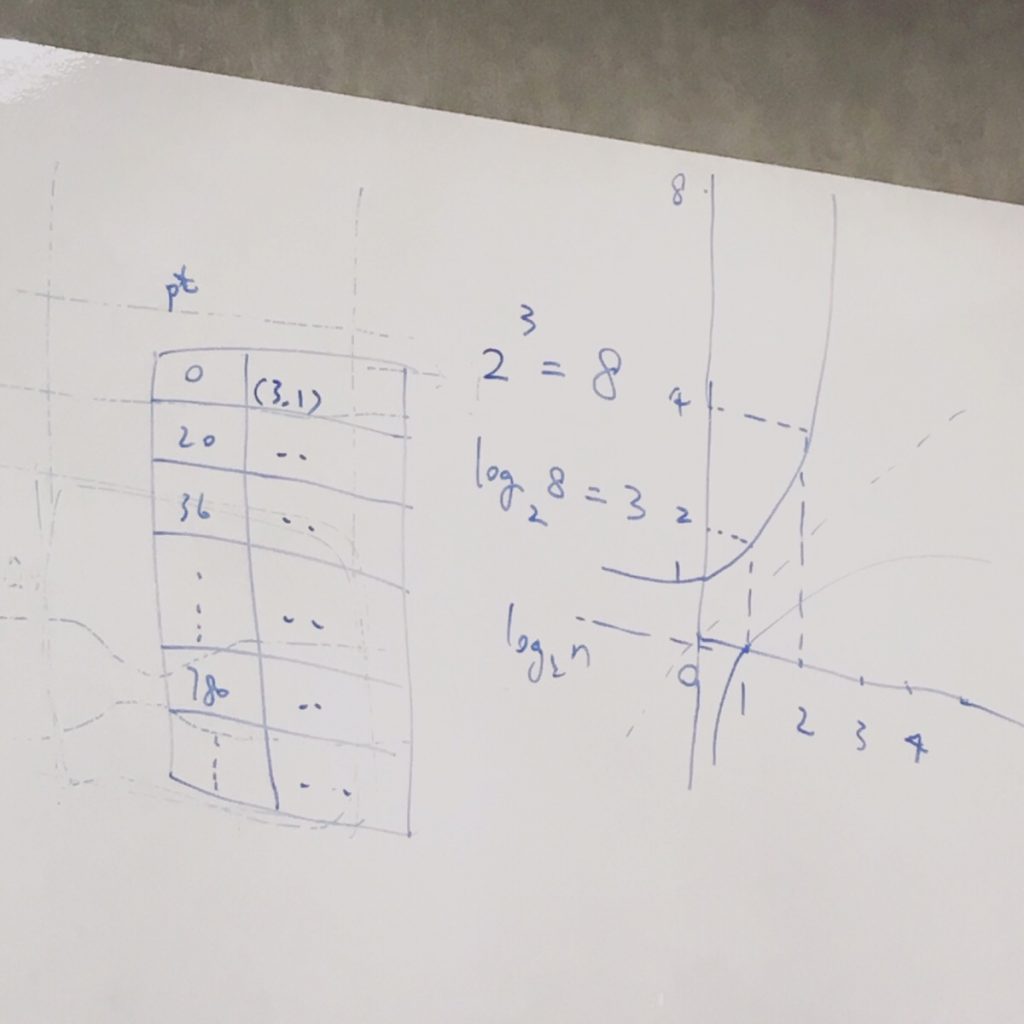 pt
0 (3.1)
20 ..
36 ..
⋮ ..
780 ..
⋮ ..
2³ = 8
log₂8 = 3
log₂n
8
4
2
1
0
1 2 3 4